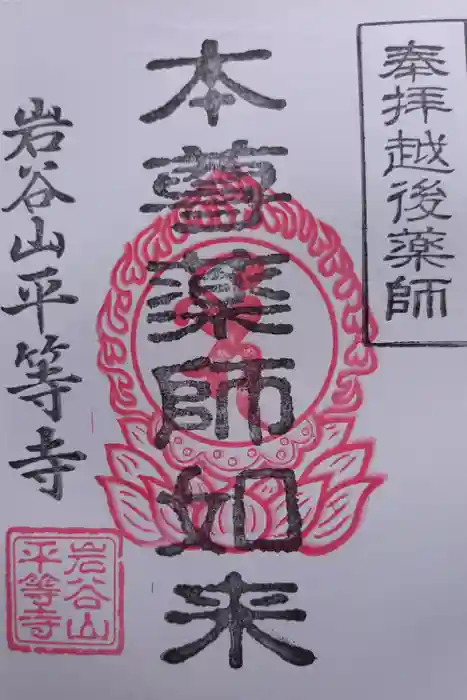 奉拝越後薬師
本尊薬師如来
岩谷山平等寺
岩谷山
平等寺